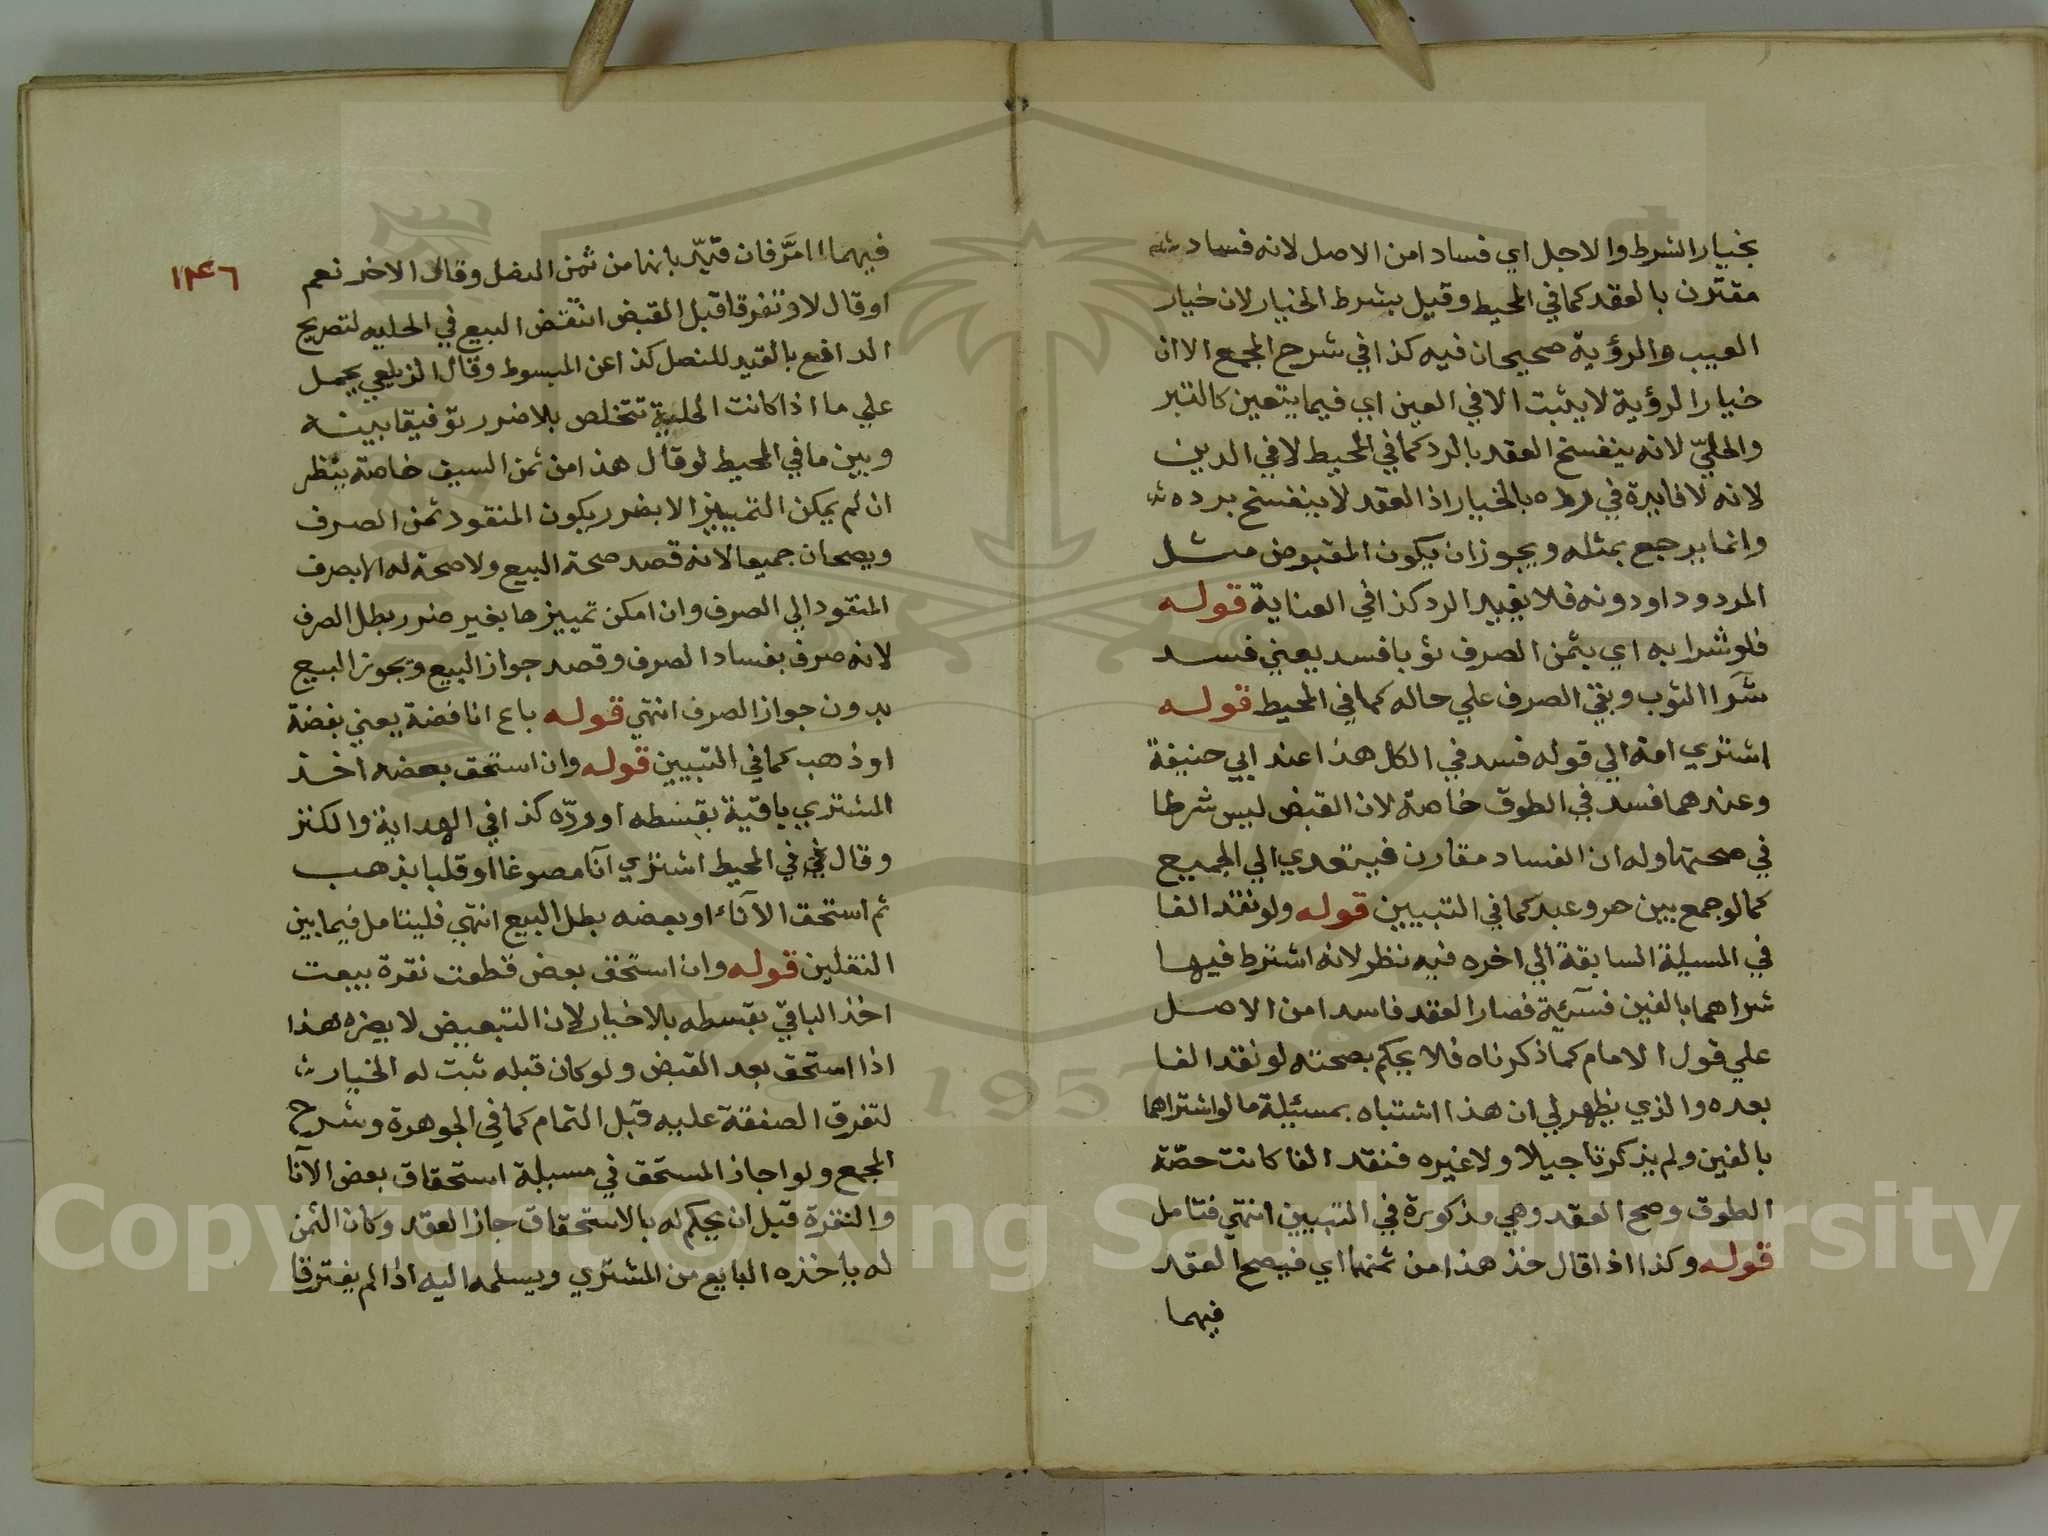 بخيار الشرط والاجل اي فسادا من الاصل لانه فساد
مقترن بالعقد كما في المحيط وقيل بشرط الخيار لان خيار
العيب والرؤية صحيحان فيه كذا في شرح المجمع الا ان
خيار الرؤية لا يثبت الا في العين اي فيما يتعين كالتبر
والحلي لانه ينفسخ العقد بالرد كما في المحيط لا في الدين
لانه لا فايدة في رده بالخيار اذ العقد لا ينفسخ برده
وانما يرجع بمثله ويجوز ان يكون المقبوض مثل
المردود او دونه فلا يفيد الرد كذا في العناية قوله
فلو شرا به اي بثمن الصرف ثوبا فسد يعني فسد
شرا الثوب وبقي الصرف علي حاله كما في المحيط قوله
اشتري امة الي قوله فسد في الكل هذا عند ابي حنيفة
وعندهما فسد في الطوق خاصة لان القبض ليس شرطا
في صحتها وله ان الفساد مقارن فيتعدي الي الجميع
كما لو جمع بين حر وعبد كما في التبيين قوله ولو نقد الفا
في المسيلة السابقة الي اخره فيه نظر لانه اشترط فيها
شراهما بالفين نسيئة فصار العقد فاسدا من الاصل
علي قول الامام كما ذكرناه فلا يحكم بصحته لو نقد الفا
بعده والذي يظهر لي ان هذا اشتباه بمسئيلة ما لو اشتراهما
بالفين ولم يذكر تاجيلا ولا غيره فنقد الفا كانت حصة
الطوق وصح العقد وهي مذكورة في التبيين انتهي فتامل
قوله وكذا اذا قال خذ هذا من ثمنهما اي فيصح العقد
فيهما
١٣٤٦
فيهما لما مر فان قيد بانها من ثمن النصل وقال الاخر نعم
او قال لا وتفرقا قبل القبض انتقض البيع في الحليه لتصريح
الدافع بالقيد للنصل كذا عن المبسوط وقال الزيلعي يحمل
علي ما اذا كانت الحلية تتخلص بلا ضرر توفيقا بينه
وبين ما في المحيط لو قال هذا من ثمن السيف خاصة ينظر
ان لم يمكن التمييز الا بضرر يكون المنقود ثمن الصرف
ويصحان جميعا لانه قصد صحة البيع ولا صحة له الا بصرف
المنقود الي الصرف وان امكن تمييزها بغير ضرر بطل الصرف
لانه صرف بفساد الصرف وقصد جواز البيع وتجوز البيع
بدون جواز الصرف انتهي قوله باع انا فضة يعني بفضة
او ذهب كما في التبيين قوله وان استحق بعضه اخذ
المشتري باقية بقسطه او رده كذا في الهداية والكنز
وقال في المحيط اشتري آنا مصوغا او قلبا بذهب
ثم استحق الآناء او بعضه بطل البيع انتهي فليتامل فيما بين
النقلين قوله وان استحق بعض قطعت نقرة بيعت
اخذ الباقي بقسطه بلا خيار لان التبعيض لا يضره هذا
اذا استحق بعد القبض ولو كان قبله ثبت له الخيار
لتفرق الصفقة عليه قبل التمام كما في الجوهرة وشرح
المجمع ولو اجاز المستحق في مسيلة استحقاق بعض الآنا
والنقرة قبل ان يحكم له بالاستحقاق جاز العقد وكان الثمن
له ياخذه البايع من المشتري ويسلمه اليه اذا لم يفترقا
1957
Copyright © King Saud University